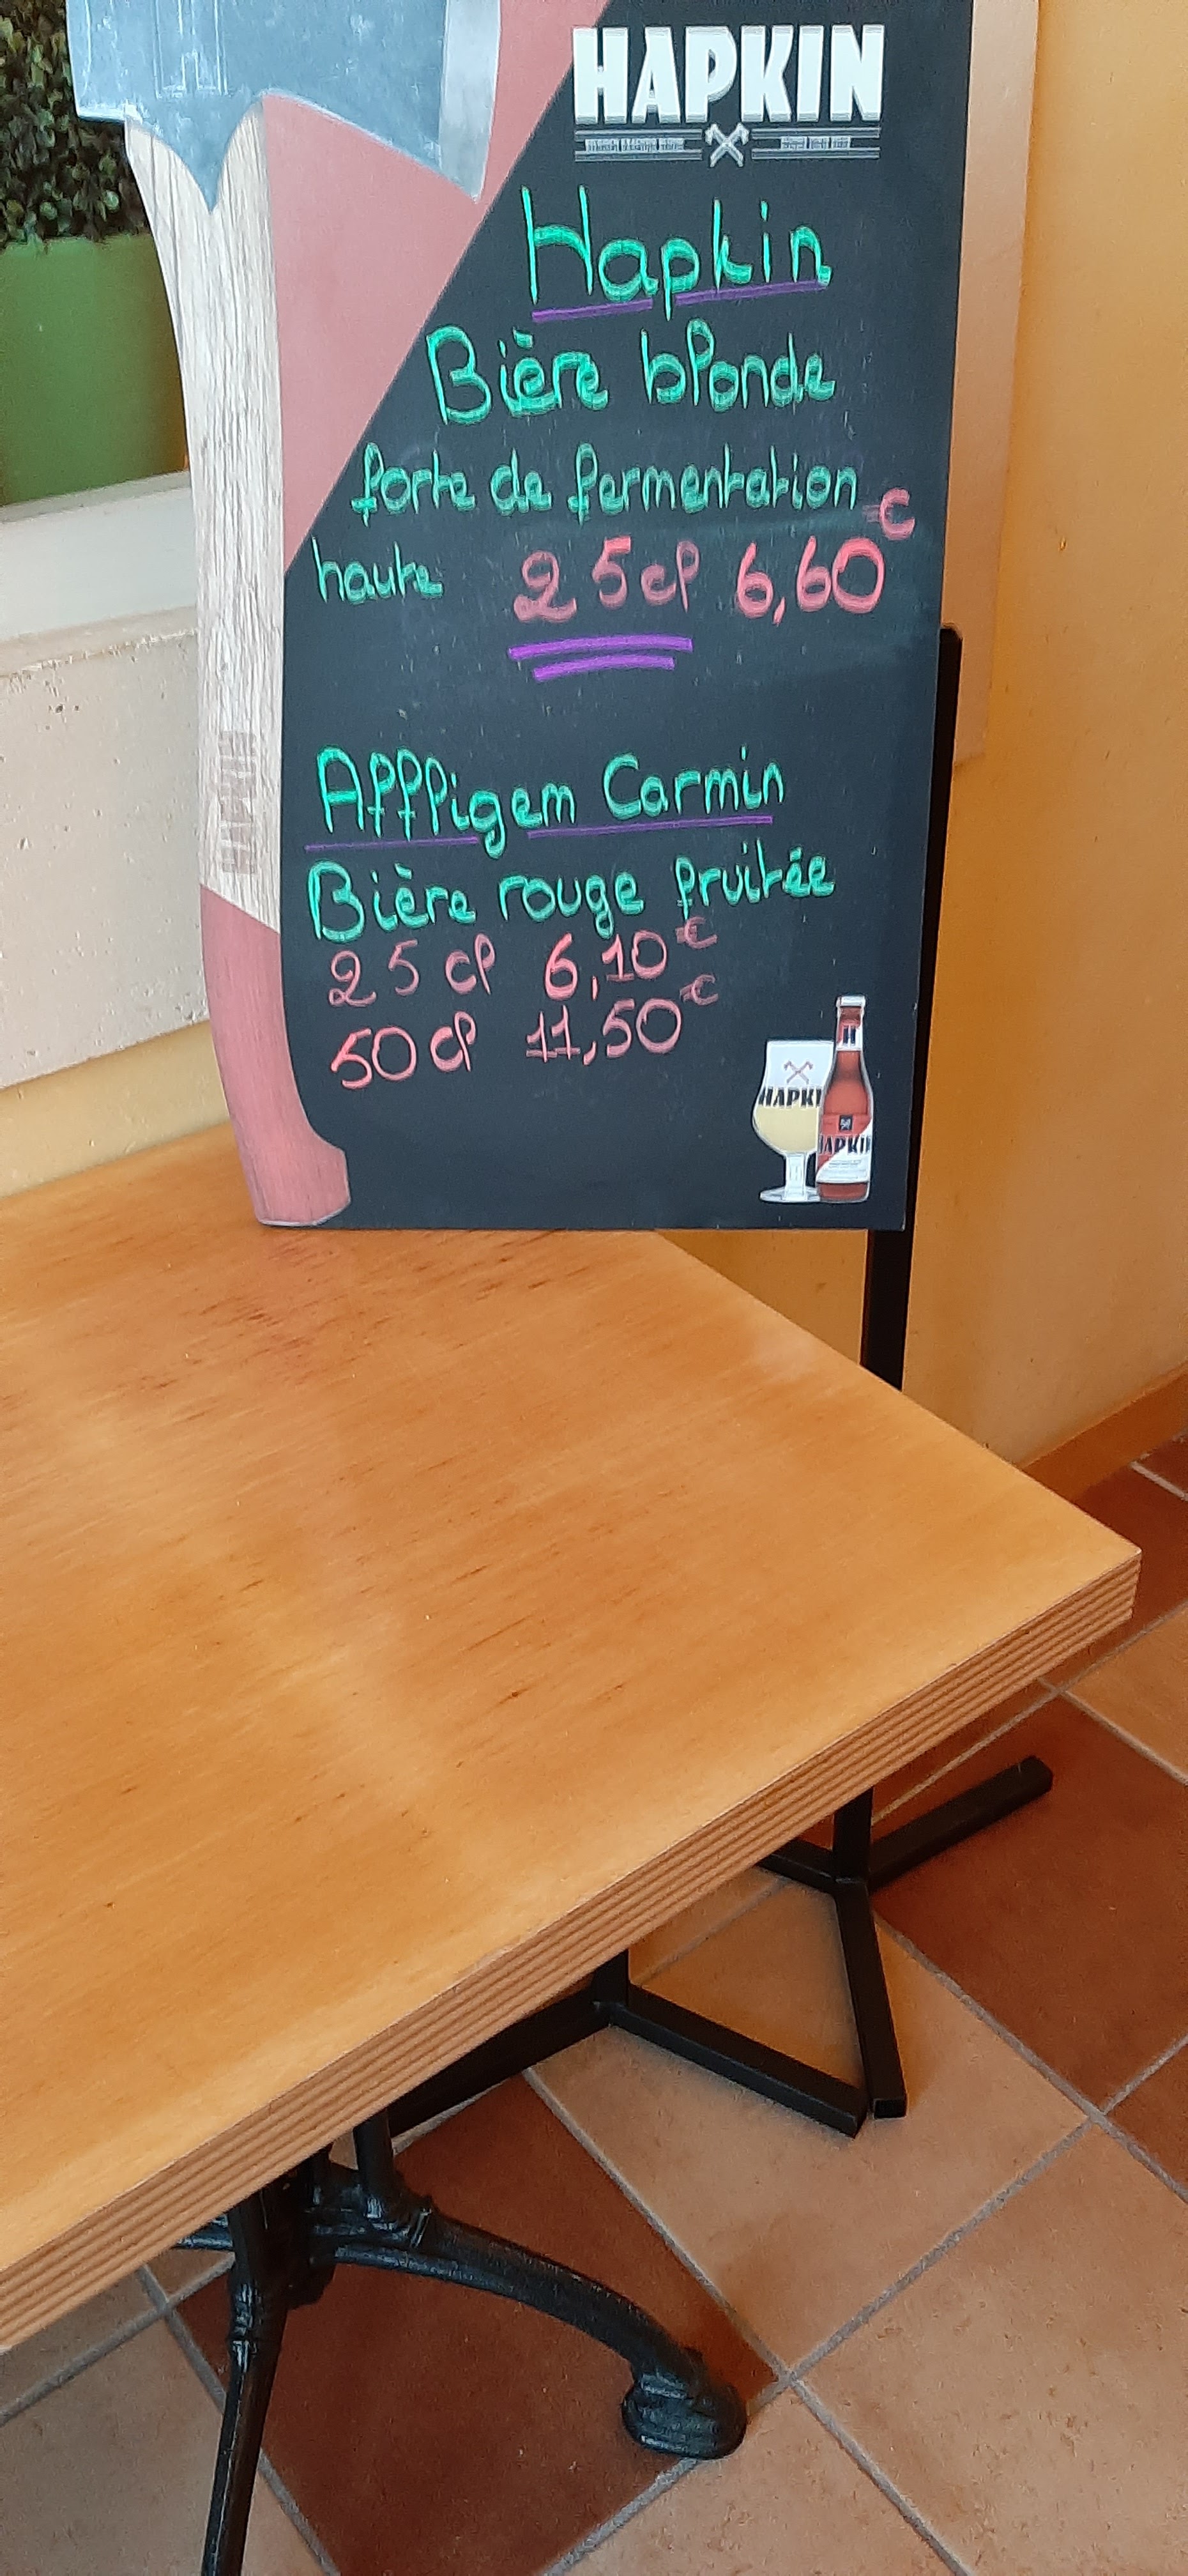 HAPKIN
Hapkin
Bière blonde
forte de fermentation
haute 25cl 6,60€
Afffligem Carmin
Bière rouge fruitée
25 cl 6,10€
50 cl 11,50€
HAPKIN
HAPKIN